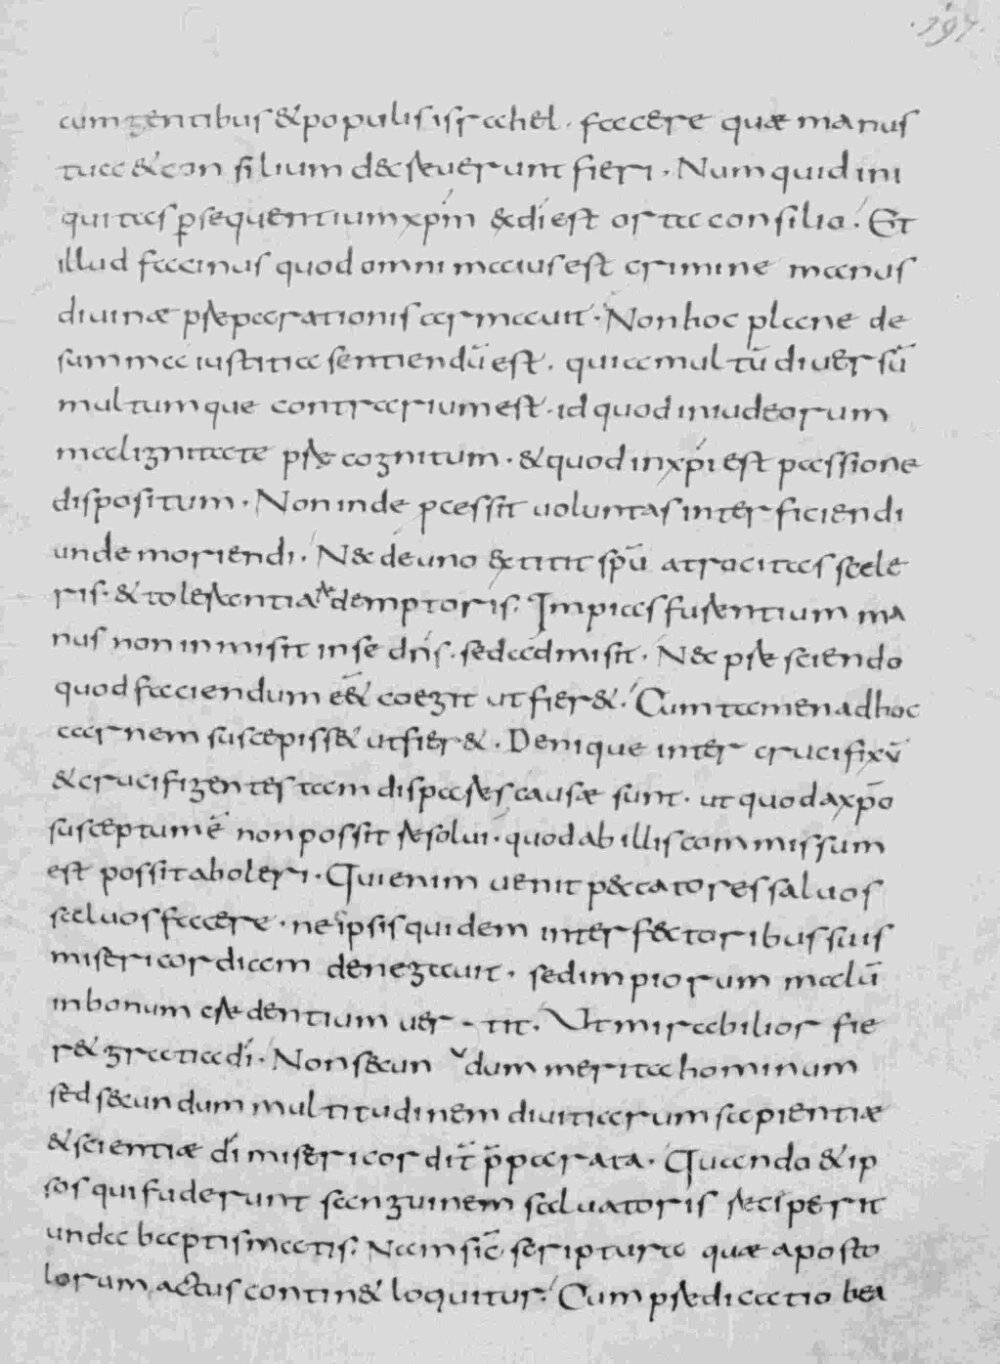 ·197·
cum gentibus & populis israhel · facere quae manus
tua & consilium decreuerunt fieri · Numquid ini
quitas p̱sequentium xp̄m & di est orta consilio · Et
illud facinus quod omni maius est crimine manus
diuinae pręparationis armauit · Non hoc plane de
summa iustitia sentiendū est · quia multū diuersū
multumque contrarium est · id quod in iudeorum
malignitate prę cognitum · & quod in xp̄i est passione
dispositum · Non inde pcessit uoluntas interficiendi
unde moriendi · Nec de uno extitit sp̄u atrocitas scele
ris · & tolerantia redemptoris · Impias furentium ma
nus non inmisit in se dn̄s · sed admisit · Nec prę sciendo
quod faciendum ē& coegit ut fier& · Cum tamen ad hoc
carnem suscepiss& ut fier& · Denique inter crucifixū
& crucifigentes tam dispares causae sunt · ut quod a xp̄o
susceptum ē non possit resolui · quod ab illis commissum
est possit aboleri · Qui enim uenit peccatores saluos
saluos facere · ne ipsis quidem interfectoribus suis
misericordiam denegauit · sed impiorum malū
in bonum credentium uer-tit · Ut mirabilior fie
r& gratia di · Non secundum merita hominum
sed secundum multitudinem diuitiarum sapientiae
& scientiae di misericordit p̄parata · Quando & ip
sos qui fuderunt sanguinem saluatoris reciperit
unda baptismatis · Nam sic̄ scriptura quae aposto
lorum actus contin& loquitur · Cum prędicatio bea